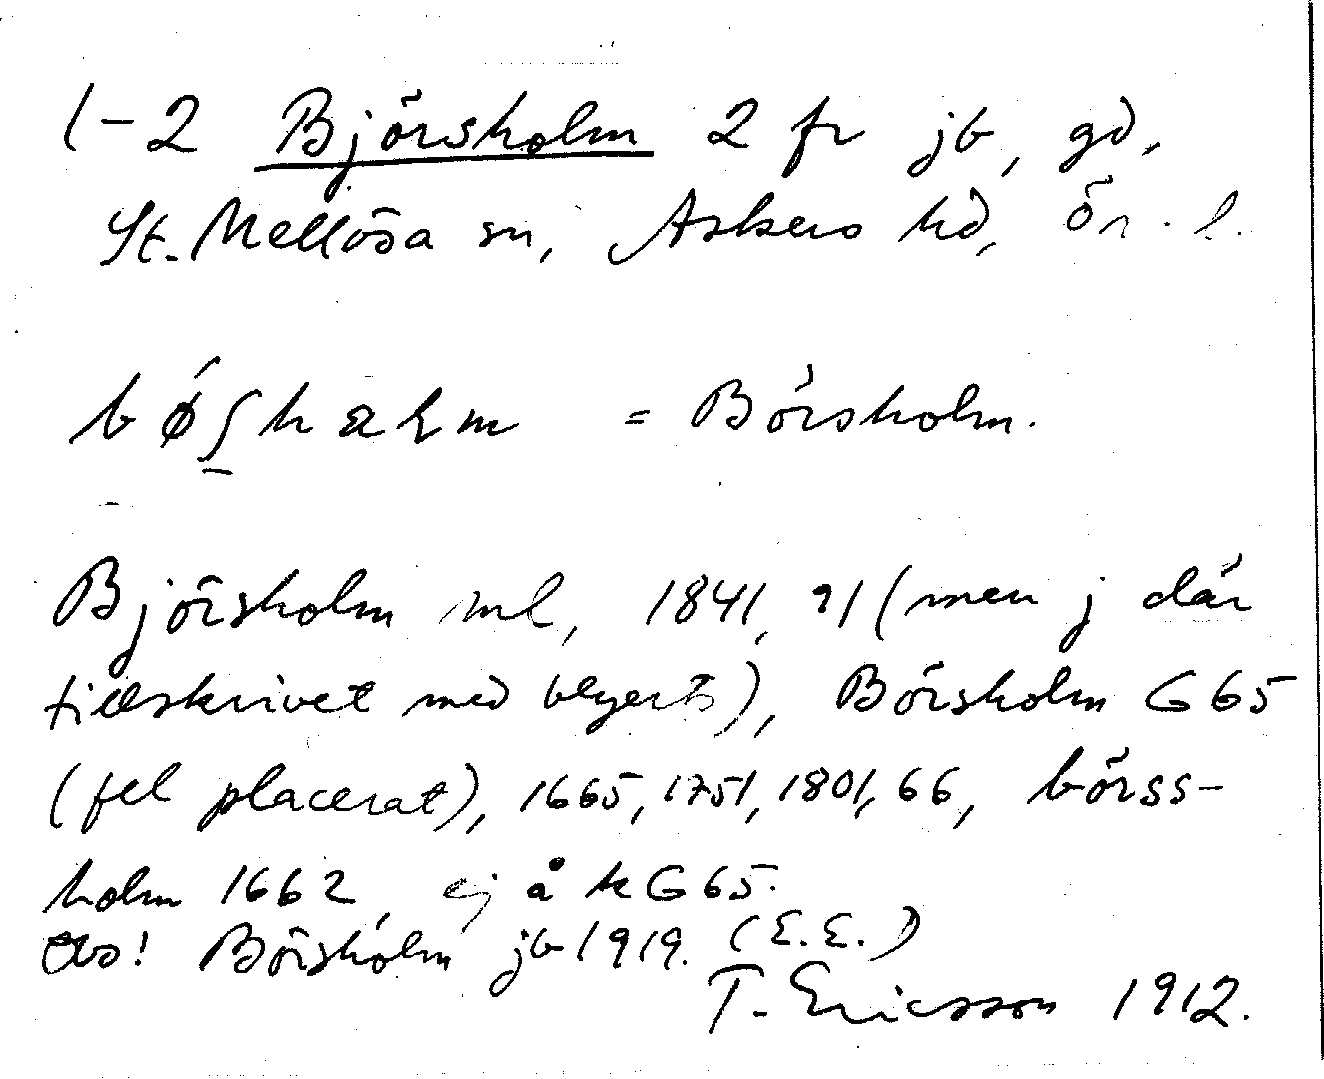 1-2 Björsholm 2 fr jb, gd,
St. Mellösa sn, Askers hd, Ör. l.
bǿʃhalm = Börsholm.
Björsholm ml, 1841, 91 (men j där
tillskrivet med blyerts), Börsholm G 65
(fel placerat), 1665, 1751, 1801, 66, börss-
holm 1662, ej å k G 65.
Obs! Börsholm jb 1919. (E.E.)
T. Ericsson 1912.